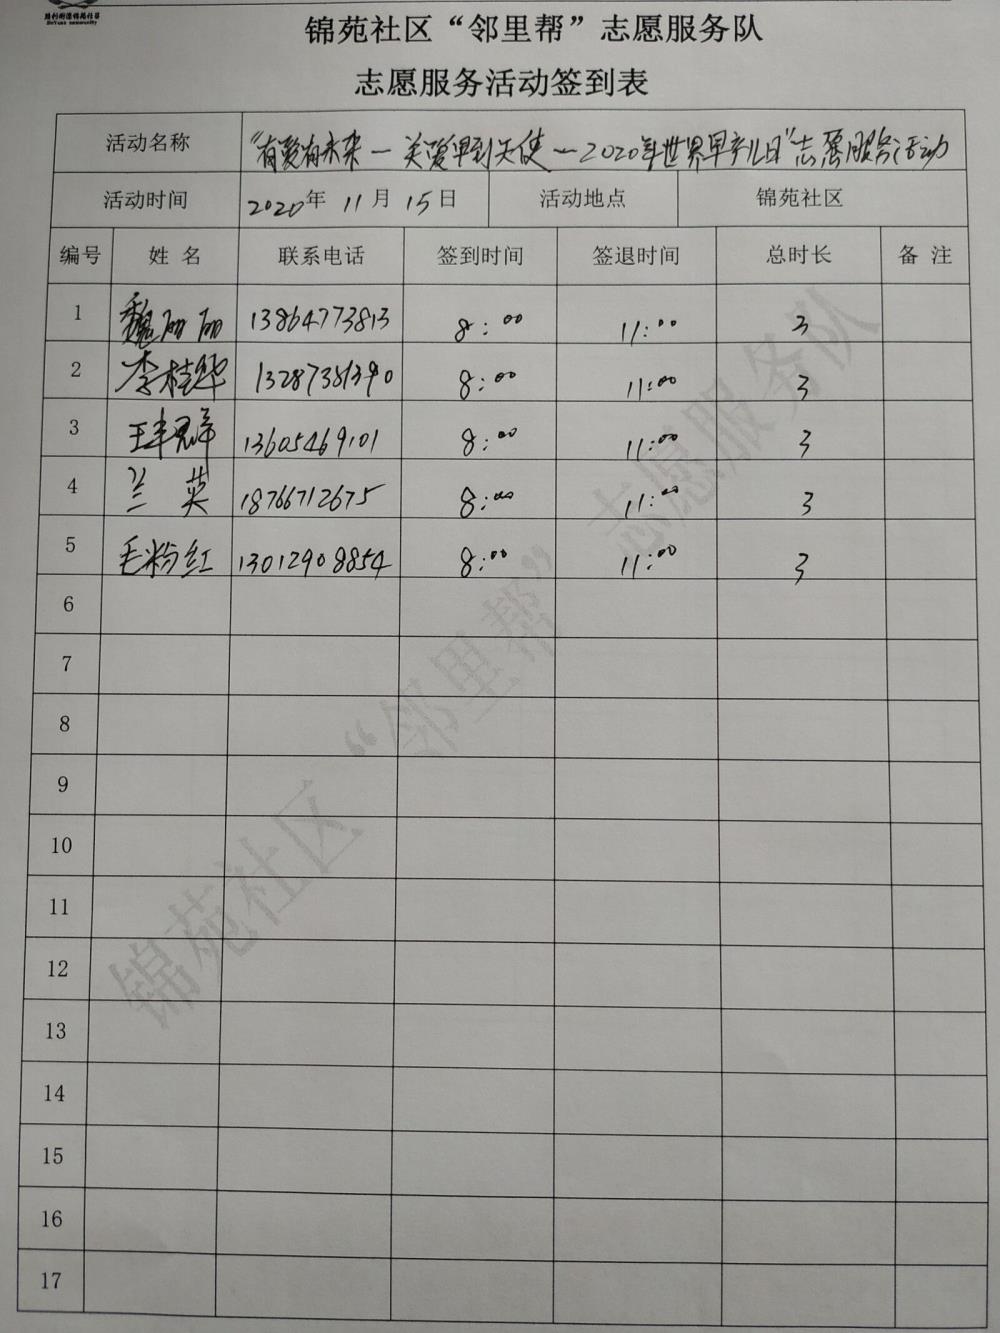 胜利街道锦苑社区
锦苑社区“邻里帮”志愿服务队
志愿服务活动签到表
活动名称 “有爱有未来—关爱早到天使—2020年世界早产儿日”志愿服务活动
活动时间 2020年 11月 15日 活动地点 锦苑社区
编号 姓名 联系电话 签到时间 签退时间 总时长 备注
1 魏丽丽 13864773813 8:00 11:00 3
2 李桂华 13287381390 8:00 11:00 3
3 王丰君群 13605469101 8:00 11:00 3
4 兰英 18766712675 8:00 11:00 3
5 毛粉红 13012908854 8:00 11:00 3
6
7
8
9
10
11
12
13
14
15
16
17
锦苑社区“邻里帮”志愿服务队